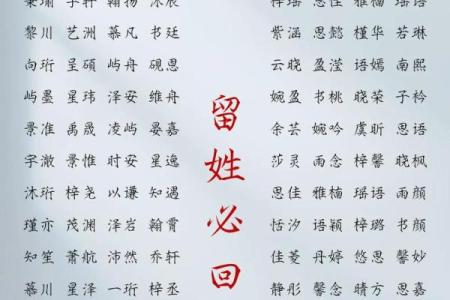 梓瑶 思佳 雅楠 瑶语
黎川 艺洲 慕凡 书廷
向珩 呈硕 屿舟 砚恩
屿墨 星玮 泽安 维舟
景淮 禹晟 凌屿 晏嘉
宇澈 景惟 时安 星逸
沐珩 梓尧 以谦 知遇
瑾亦 茂渊 泽岩 翰霄
知笙 萧航 沛然 乔轩
慕川 星泽 一珩 梓丞
留姓必回
紫涵 思懿 槿华 若琳
云晓 盈滢 语嫣 南熙
婉盈 书桃 晓荣 子衿
余芸 婉吟 虞昕 思语
莎灵 雨念 梓馨 晓枫
思佳 雅楠 瑶语 雨颜
恬汐 语颖 梓璐 书颜
佳菱 丹婷 悠思 馨妙
静彤 馨念 晴方 思嘉